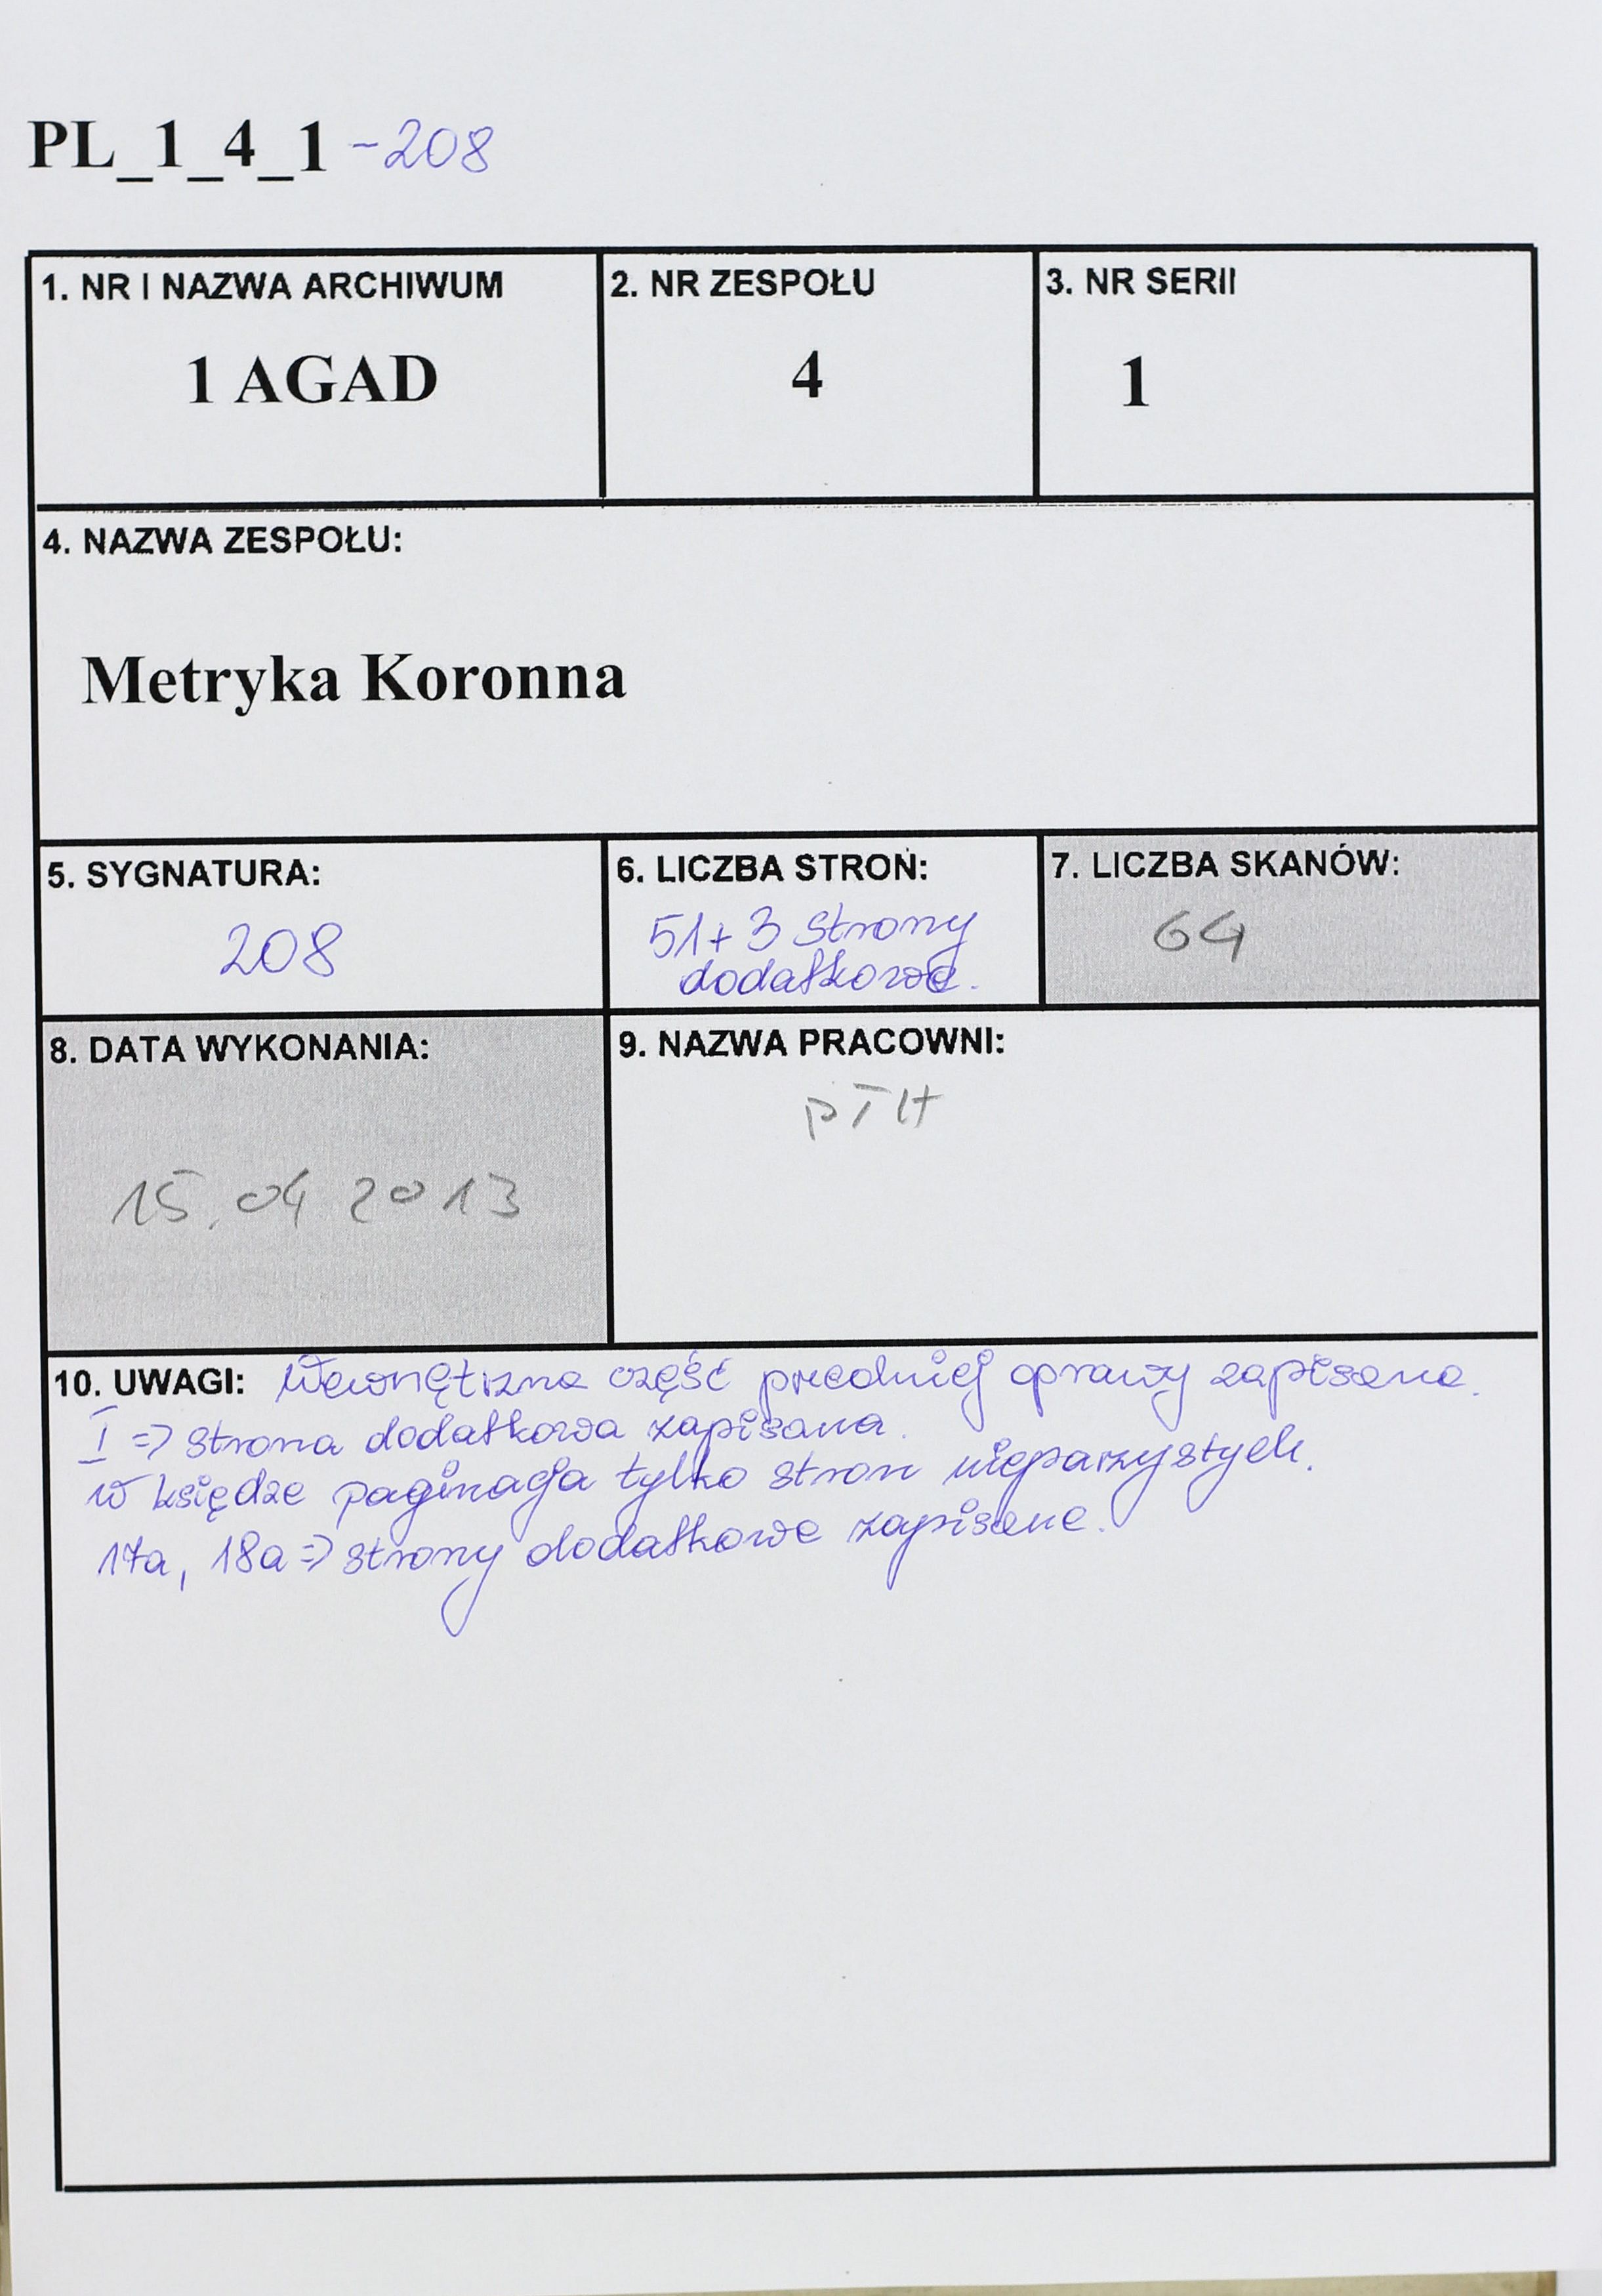 PL_1_4_1 -208
1. NR I NAZWA ARCHIWUM
1 AGAD
2. NR ZESPOŁU
4
3. NR SERII
1
4. NAZWA ZESPOŁU:
Metryka Koronna
5. SYGNATURA:
208
6. LICZBA STRON:
51+3 strony
dodatkowe.
7. LICZBA SKANÓW:
64
8. DATA WYKONANIA:
15.04 2013
9. NAZWA PRACOWNI:
PTH
10. UWAGI: Wewnętrzna część przedniej oprawy zapisana.
I => strona dodatkowa zapisana.
W księdze paginacja tylko stron nieparzystych.
17a, 18a => strony dodatkowe zapisane.